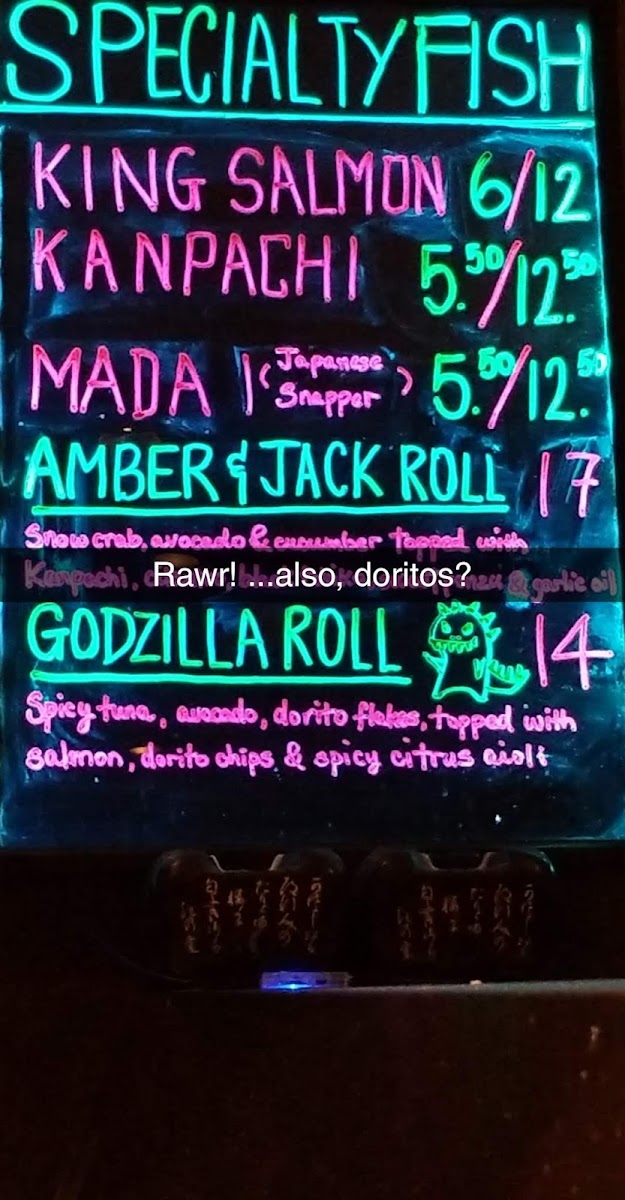 SPECIALTY FISH
KING SALMON 6/12
KANPACHI 5.50/12.50
MADAI (Japanese Snapper) 5.50/12.50
AMBER & JACK ROLL 17
Snow crab, avocado & cucumber topped with
Kanpachi, & garlic oil
Rawr! ...also, doritos?
GODZILLA ROLL 14
Spicy tuna, avocado, dorito flakes, topped with
salmon, dorito chips & spicy citrus aioli